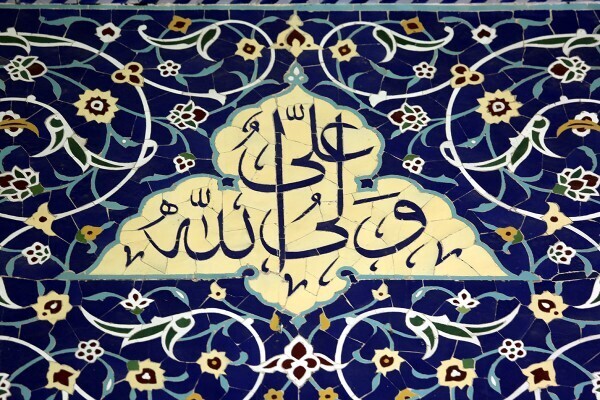 علي
ولي الله